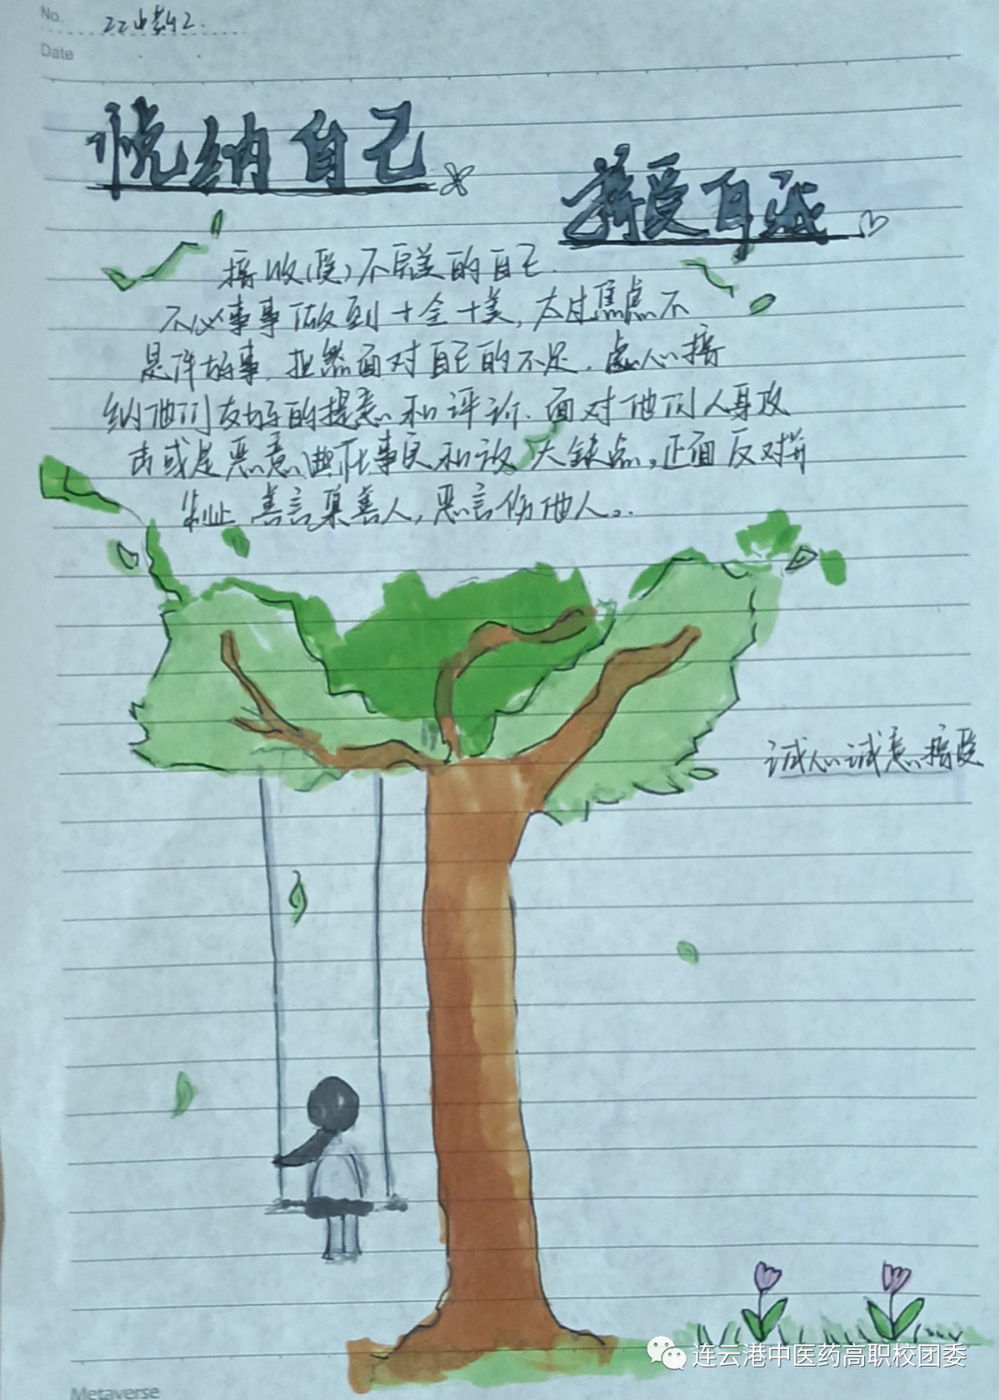 No. 22中药2.
Date
悦纳自己
接受自我
接收(受)不完美的自己.
不必事事做到十全十美,太过焦虑不
是件好事,坦然面对自己的不足,虚心接
纳他们友好的提意和评价.面对他们人身攻
击或是恶意 事实和放大缺点,正面反对并
制止 善言集善人,恶言伤他人。.
诚心诚意接受
连云港中医药高职校团委
Metaverse